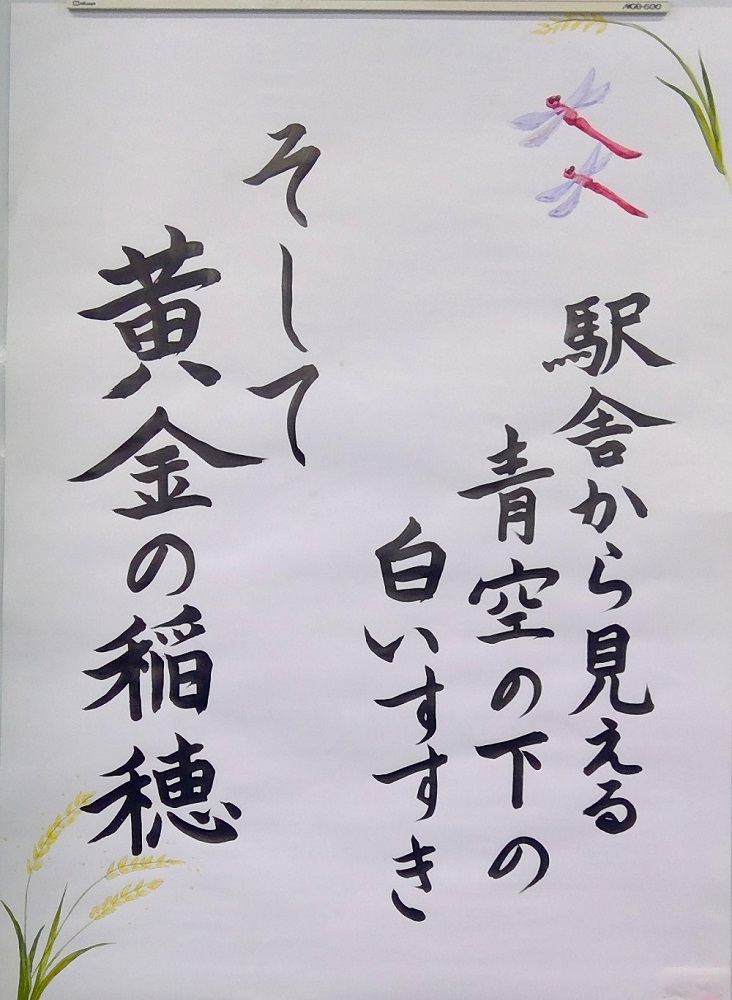 駅舎から見える
青空の下の
白いすすき
そして
黄金の稲穂
MGB-600